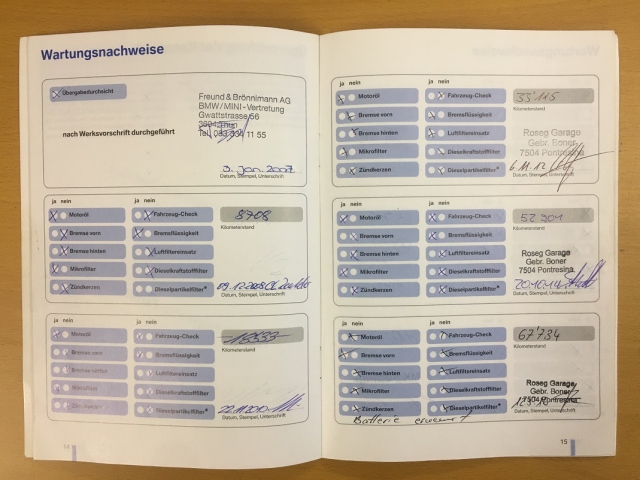 Wartungsnachweise
Übergabedurchsicht
nach Werksvorschrift durchgeführt
Freund & Brönnimann AG
BMW/MINI-Vertretung
Gwattstrasse 56
Tel. 11 55
3. Jan. 2007
Datum, Stempel, Unterschrift
ja nein ja nein
Motoröl Fahrzeug-Check 8708
Kilometerstand
Bremse vorn Bremsflüssigkeit
Bremse hinten Luftfiltereinsatz
Mikrofilter Dieselkraftstofffilter
Zündkerzen Dieselpartikelfilter*
Datum, Stempel, Unterschrift
ja nein ja nein
Motoröl Fahrzeug-Check
Kilometerstand
Bremse vorn Bremsflüssigkeit
Bremse hinten Luftfiltereinsatz
Mikrofilter Dieselkraftstofffilter
Zündkerzen Dieselpartikelfilter*
22.11.2010
Datum, Stempel, Unterschrift
ja nein ja nein
Motoröl Fahrzeug-Check 33'115
Kilometerstand
Bremse vorn Bremsflüssigkeit
Bremse hinten Luftfiltereinsatz
Mikrofilter Dieselkraftstofffilter
Zündkerzen Dieselpartikelfilter*
Roseg Garage
Gebr. Boner
7504 Pontresina
6.11.12
Datum, Stempel, Unterschrift
ja nein ja nein
Motoröl Fahrzeug-Check 52'901
Kilometerstand
Bremse vorn Bremsflüssigkeit
Bremse hinten Luftfiltereinsatz
Mikrofilter Dieselkraftstofffilter
Zündkerzen Dieselpartikelfilter*
Roseg Garage
Gebr. Boner
7504 Pontresina
20.10.14
Datum, Stempel, Unterschrift
ja nein ja nein
Motoröl Fahrzeug-Check 67'734
Kilometerstand
Bremse vorn Bremsflüssigkeit
Bremse hinten Luftfiltereinsatz
Mikrofilter Dieselkraftstofffilter
Zündkerzen Dieselpartikelfilter*
Roseg Garage
Gebr. Boner
7504 Pontresina
Datum, Stempel, Unterschrift
Batterie erneuert
15